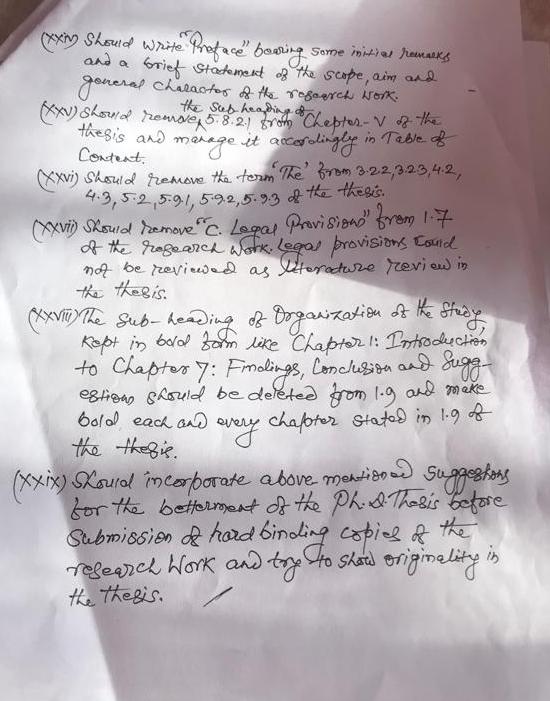 (xxiv) Should write "Preface" bearing some initial remarks
and a brief statement of the scope, aim and
general character of the research work.
(xxv) Should remove the sub heading of 5.8.21 from Chapter-V of the
thesis and manage it accordingly in Table of
Content.
(xxvi) Should remove the term 'The' from 3.2.2, 3.2.3, 4.2,
4.3, 5.2, 5.9.1, 5.9.2, 5.9.3 of the thesis.
(xxvii) Should remove "C. Legal Provisions" from 1.7
of the research work. Legal provisions could
not be reviewed as literature review in
the thesis.
(xxviii) The sub-heading of Organization of the Study,
kept in bold form like Chapter 1: Introduction
to Chapter 7: Findings, Conclusion and Sugg-
estions should be deleted from 1.9 and make
bold each and every chapter stated in 1.9 of
the thesis.
(xxix) Should incorporate above mentioned suggestions
for the betterment of the Ph.D. Thesis before
submission of hard binding copies of the
research work and try to show originality in
the thesis.